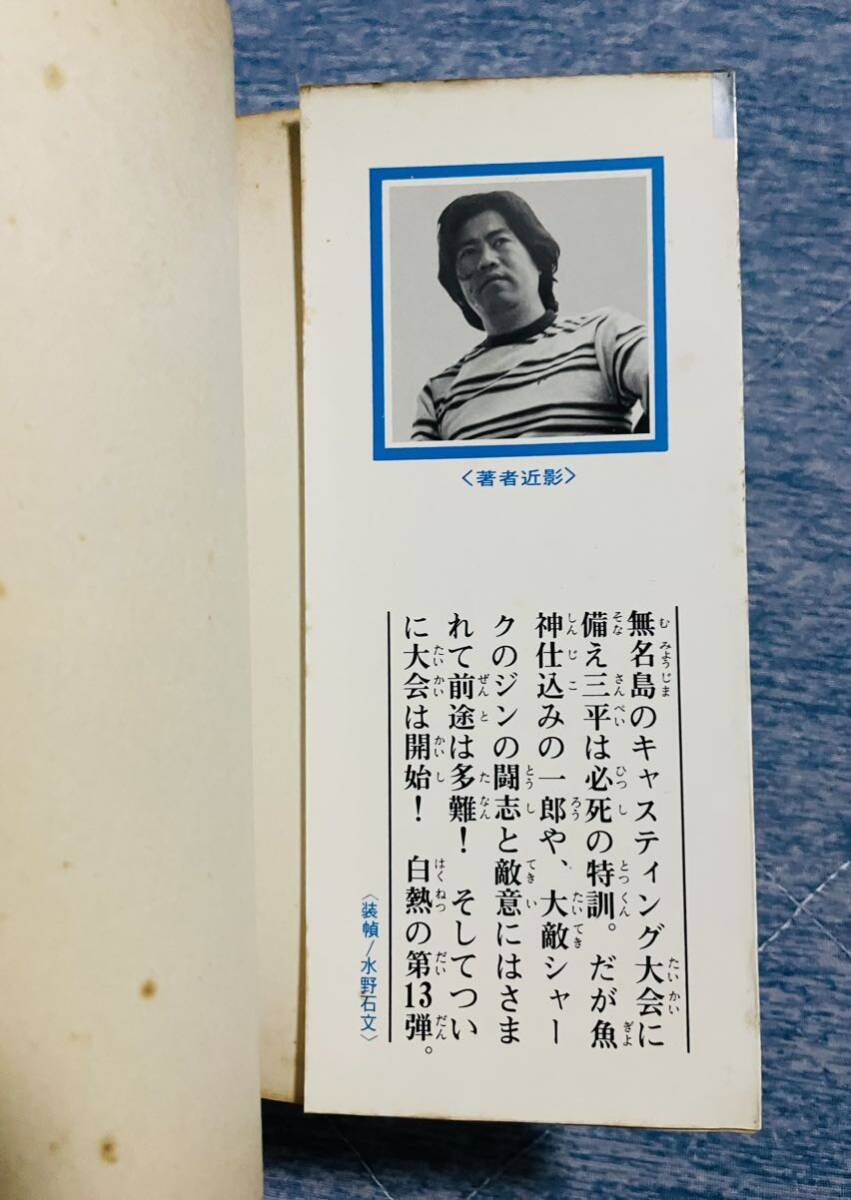 〈著者近影〉
無名島のキャスティング大会に
備え三平は必死の特訓。だが魚
神仕込みの一郎や、大敵シャー
クのジンの闘志と敵意にはさま
れて前途は多難！そしてつい
に大会は開始！白熱の第13弾。
〈装幀/水野石文〉